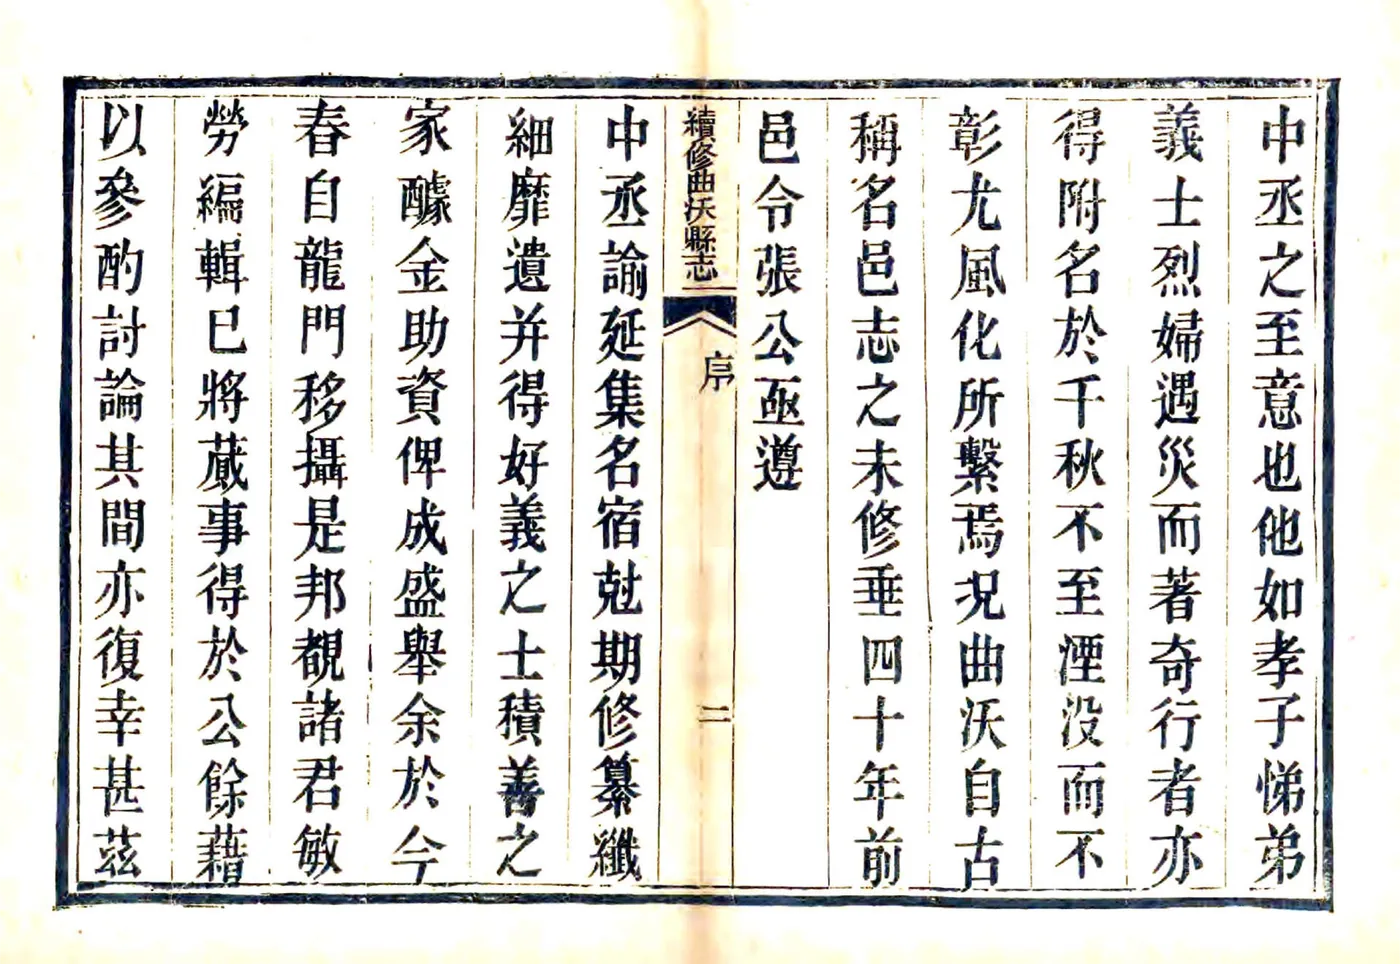 中丞之至意也他如孝子悌弟
義士烈婦遇災而著奇行者亦
得附名於千秋不至湮没而不
彰尤風化所繫焉况曲沃自古
稱名邑志之未修垂四十年前
邑令張公亟遵
續修曲沃縣志
序
二
中丞諭延集名宿尅期修纂纖
細靡遺并得好義之士積善之
家醵金助資俾成盛舉余於今
春自龍門移攝是邦覩諸君敏
勞編輯已將蕆事得於公餘藉
以參酌討論其間亦復幸甚茲